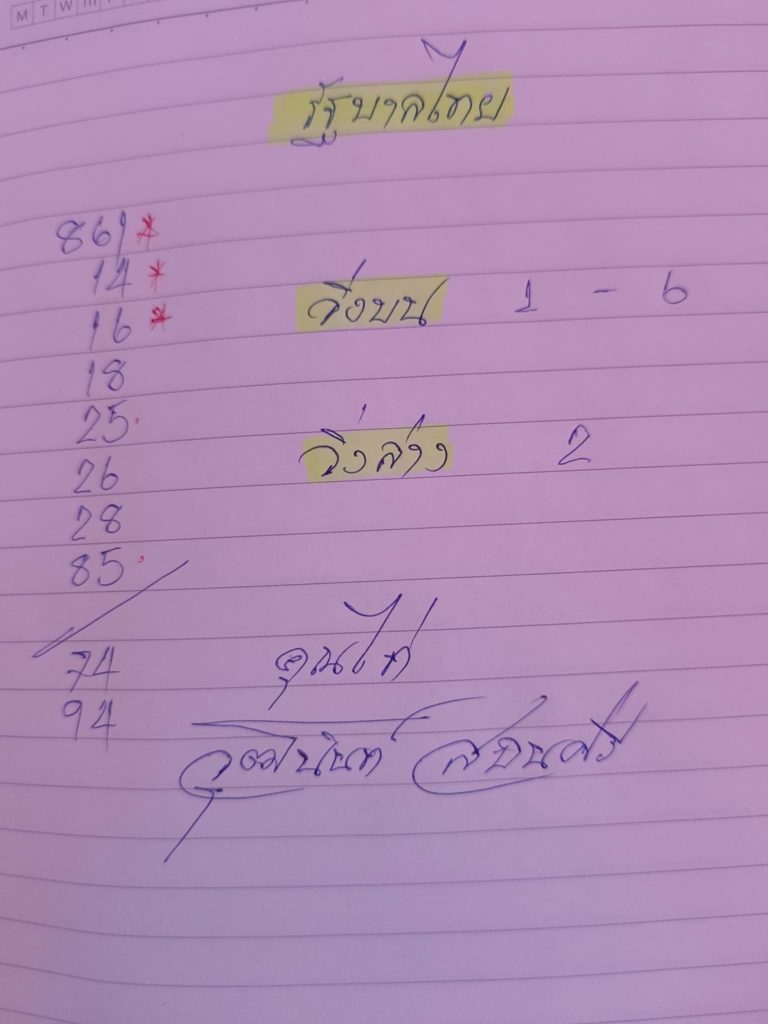 M T W
รัฐบาลไทย
861*
14*
16* วิ่งบน 1 - 6
18
25.
26 วิ่งล่าง 2
28
85.
74 คุณไก่
94